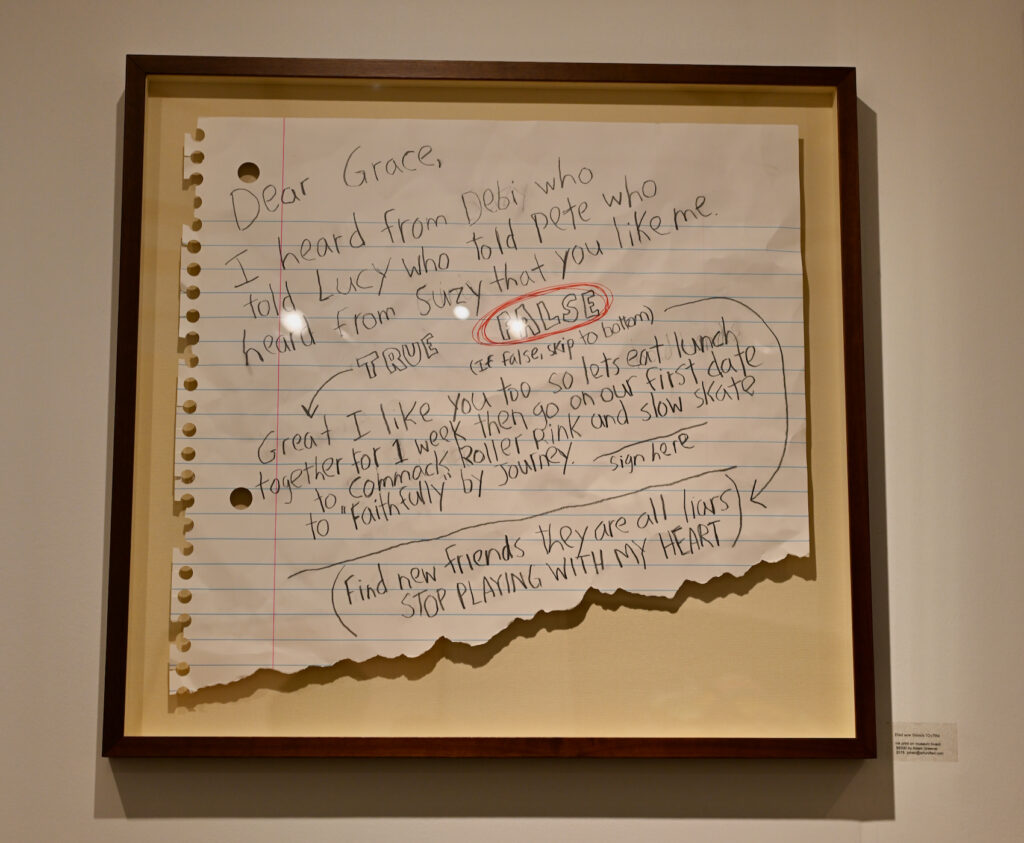 Dear Grace,
I heard from Debi who
told Lucy who told Pete who
heard from Suzy that you like me.
TRUE FALSE
(If false, skip to bottom)
Great I like you too so lets eat lunch
together for 1 week then go on our first date
to Commack Roller Rink and slow skate
to "Faithfully" by Journey.
sign here
(Find new friends they are all liars
STOP PLAYING WITH MY HEART)